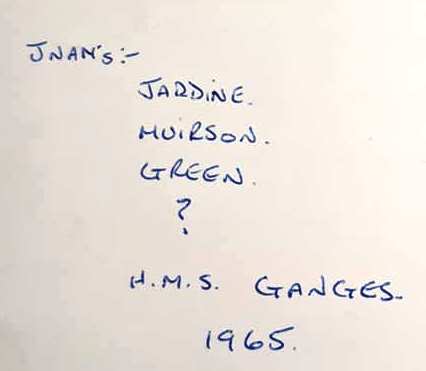 JNAM's:-
JARDINE.
MUIRSON.
GREEN.
?
H.M.S. GANGES.
1965.